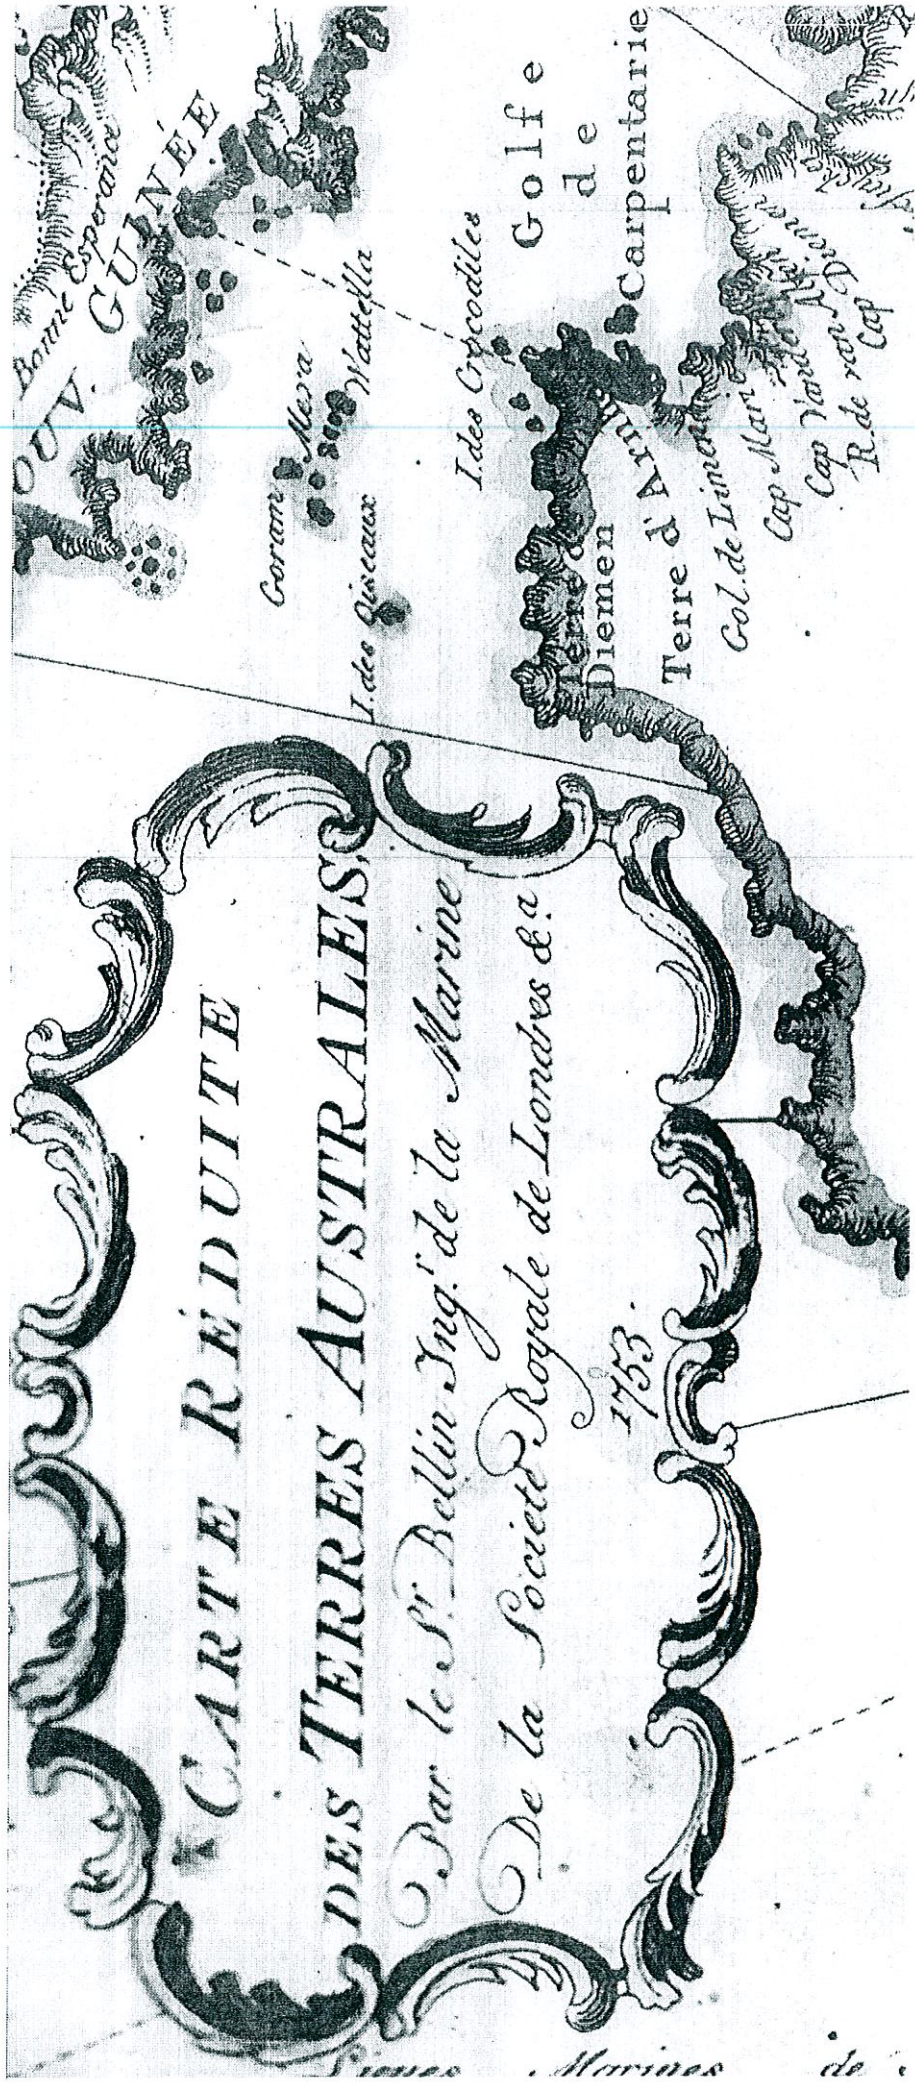 CARTE RÉDUITE
DES TERRES AUSTRALES,
Par le Sr. Bellin Ing.r de la Marine
De la Societé Royale de Londres &.a
1753.
Bonne Esperance
OUV. GUINÉE
Goram
Mera
Wattella
I. des Oiseaux
I. des Crocodiles
Golfe
de
Carpentarie
Terre de
Diemen
Terre d'Arnh
Gol. de Limen
Cap Mari
Cap Vander
R. de van Diemen
Cap
Lieues Marines de